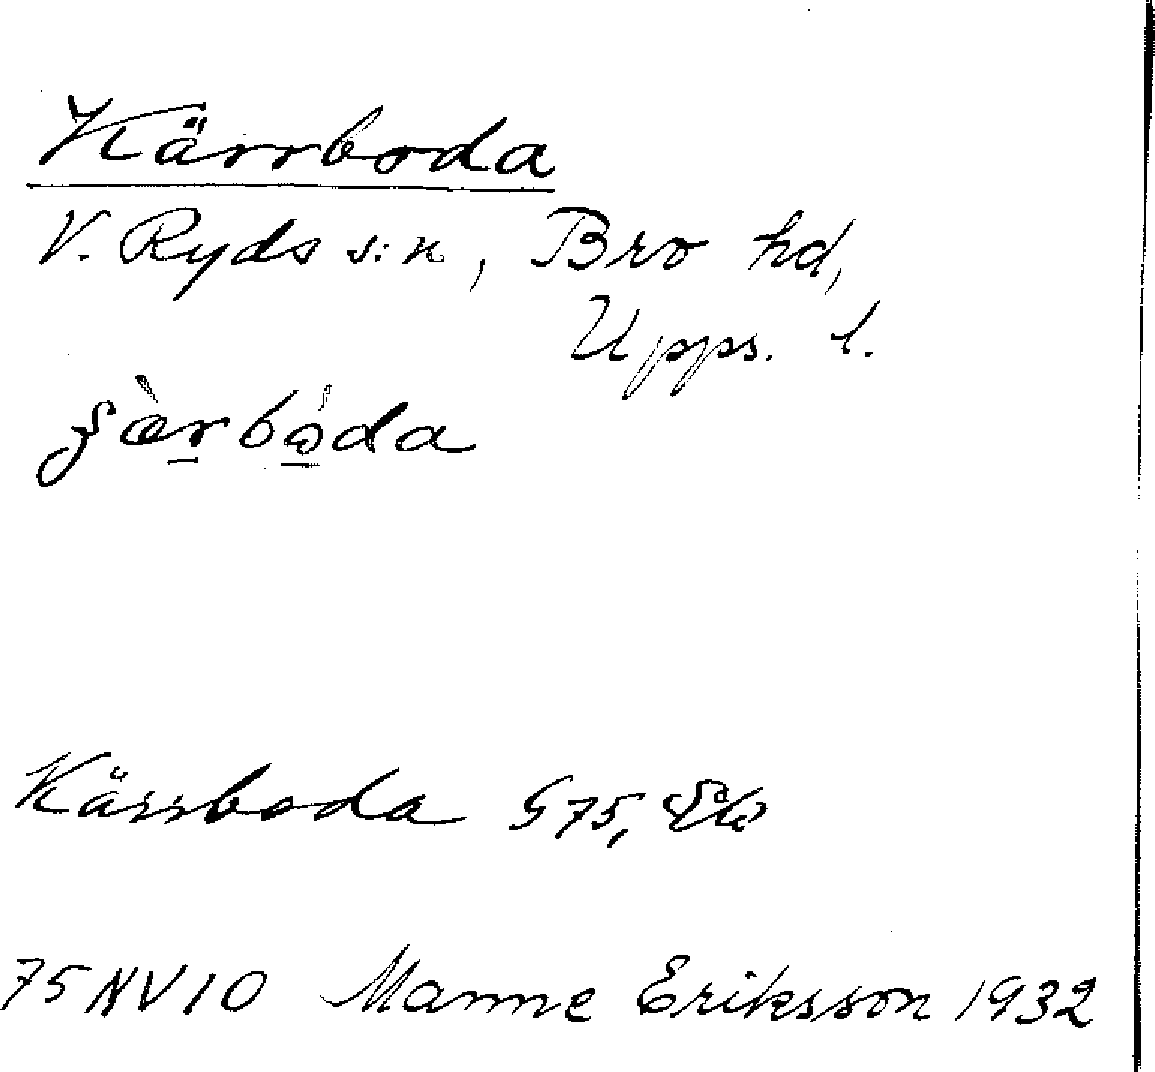 Kärrboda
V. Ryds s:n, Bro hd,
Upps. l.
Kärrboda G75,
75 NV 10 Manne Eriksson 1932